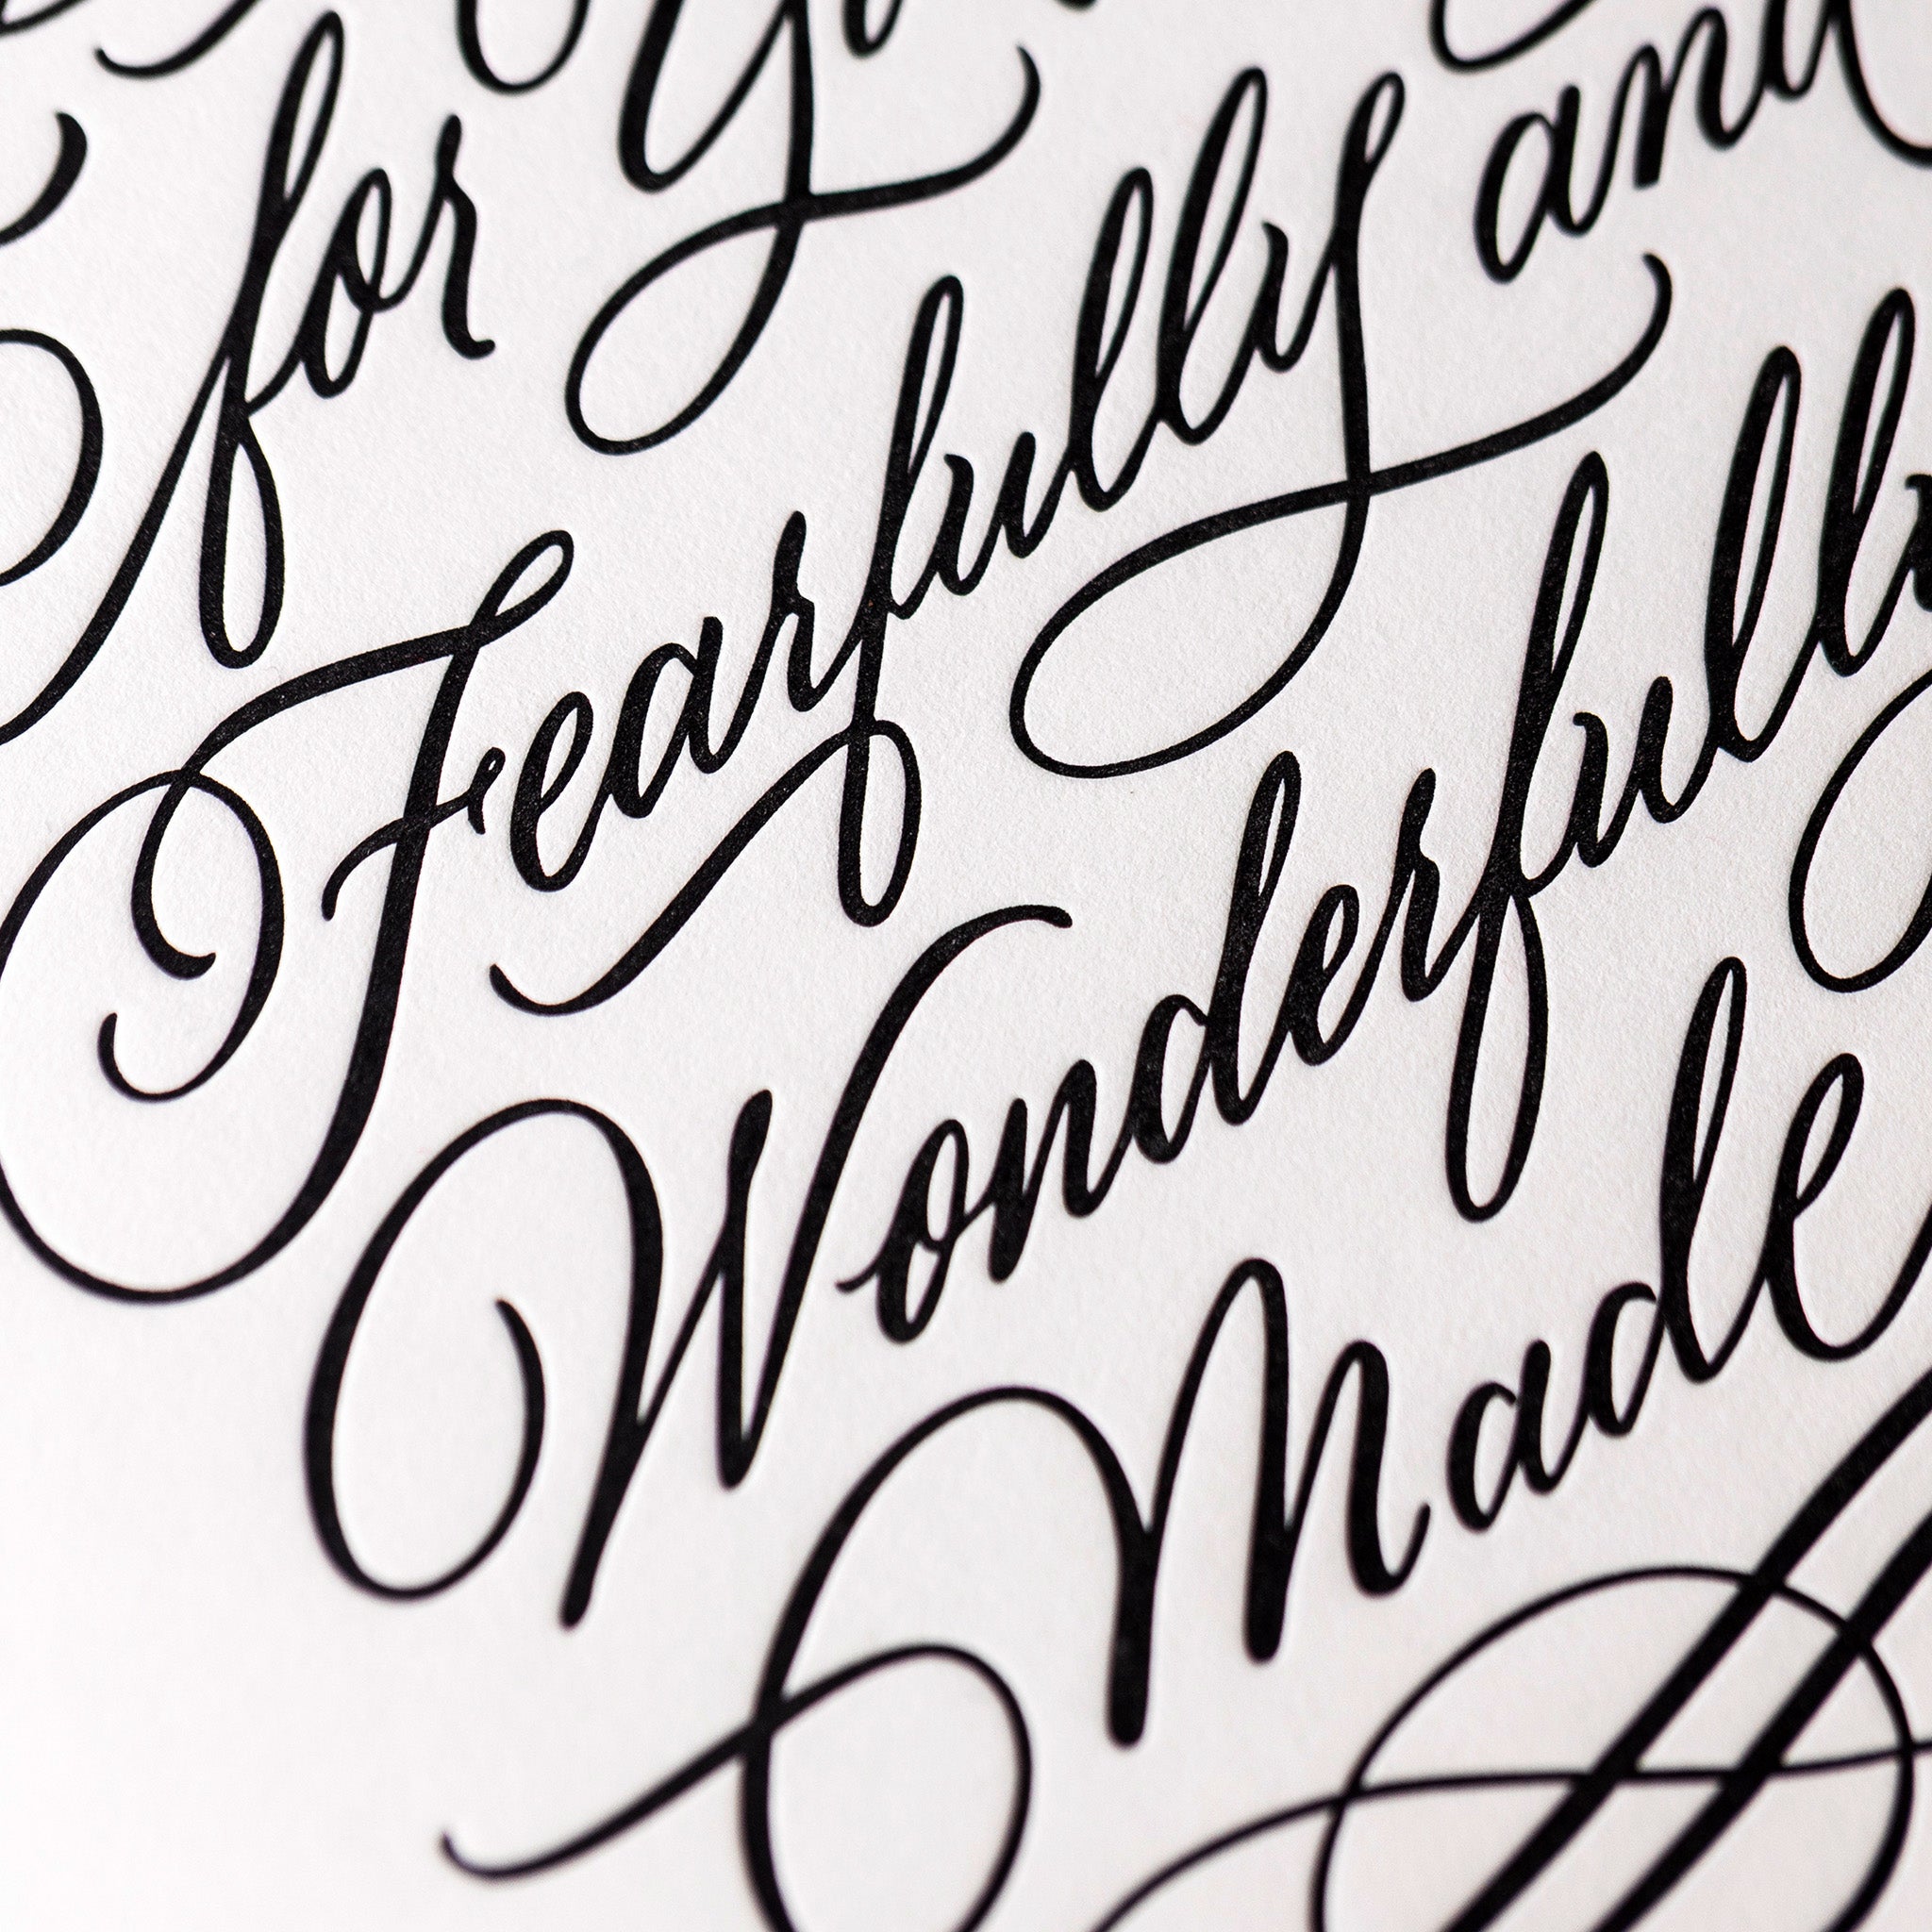 for
Fearfully and
Wonderfully
Made